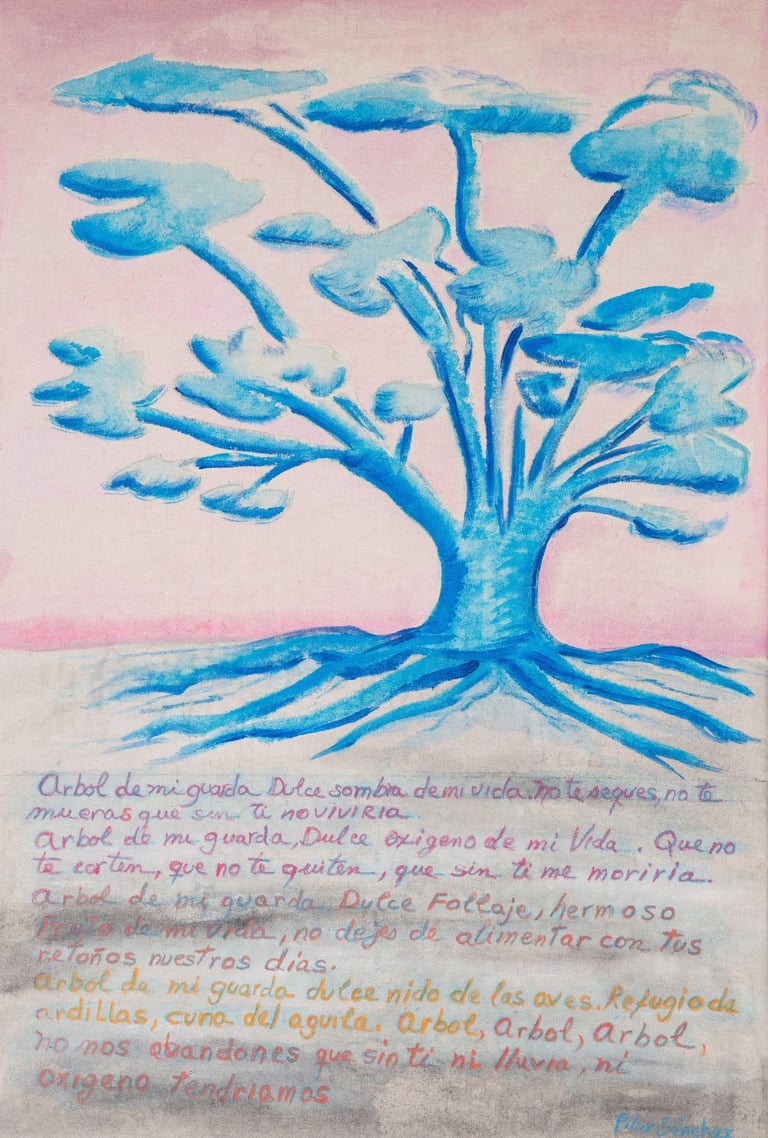 Arbol de mi guarda Dulce sombra de mi vida. no te seques, no te
mueras que sin ti no viviria.
arbol de mi guarda, Dulce oxigeno de mi Vida. Que no
te corten, que no te quiten, que sin ti me moriria.
arbol de mi guarda Dulce Follaje, hermoso
Fruto de mi vida, no dejes de alimentar con tus
retoños nuestros días.
arbol de mi guarda dulce nido de las aves. Refugio de
ardillas, cuna del aguila. Arbol, Arbol, Arbol,
no nos abandones que sin ti ni lluvia, ni
oxigeno tendriamos
Pilar Sánchez